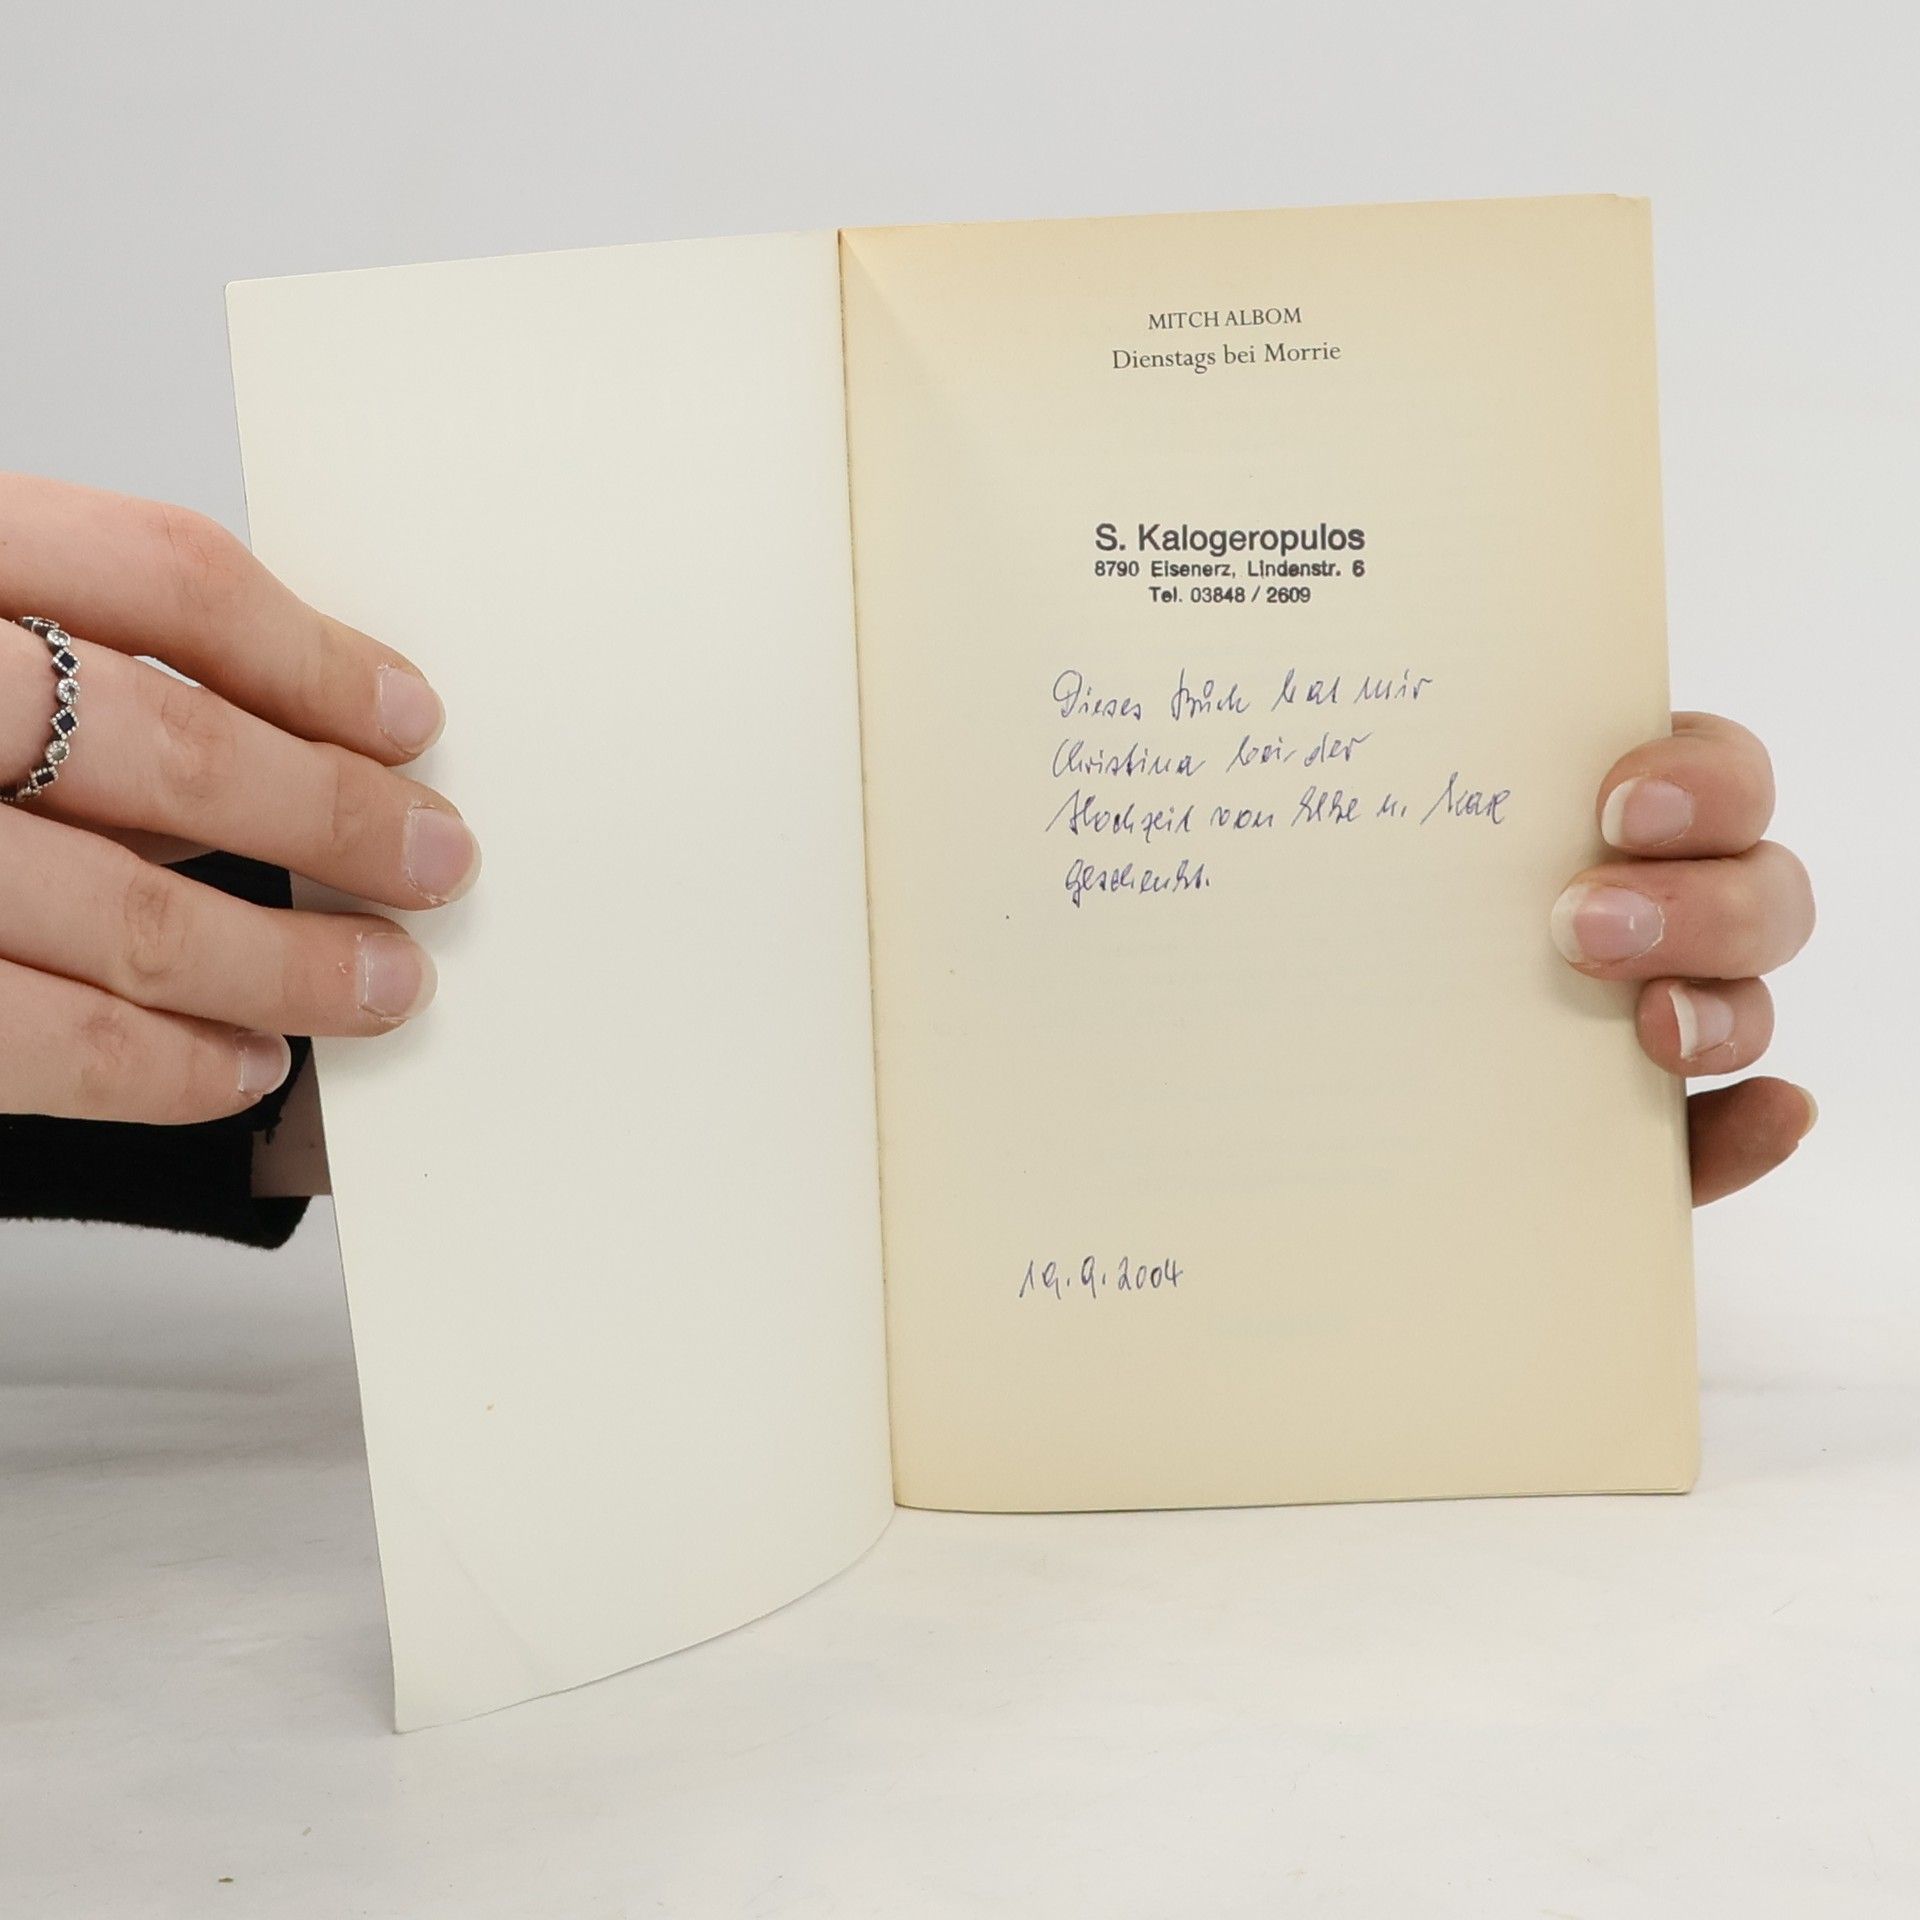 MITCH ALBOM
Dienstags bei Morrie
S. Kalogeropulos
8790 Eisenerz, Lindenstr. 6
Tel. 03848 / 2609
Dieses Buch hat mir
Christina bei der
Hochzeit von u.
geschenkt.
19.9.2004